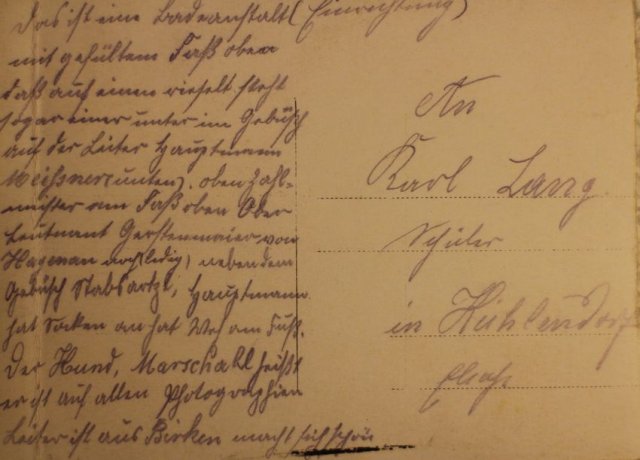 Das ist eine Badeanstalt (Einrichtung)
mit gefültem Faß oben
daß auf einen rieselt steht
sogar einer unter im Gebüsch
auf der Leiter Hauptmann
Meißner (unten). oben Zahl-
meister am Faß oben Ober
Leutnant Gerstenmaier von
Hagenau noch (ledig) neben dem
Gebüsch Stabsartzt, Hauptmann
hat Socken an hat Weh am Fuß.
Der Hund, Marschall heißt
er ist auf allen Photographien
Leiter ist aus Birken macht sich schön
An
Karl Lang
Schüler
in Hühlendorf
Elsaß